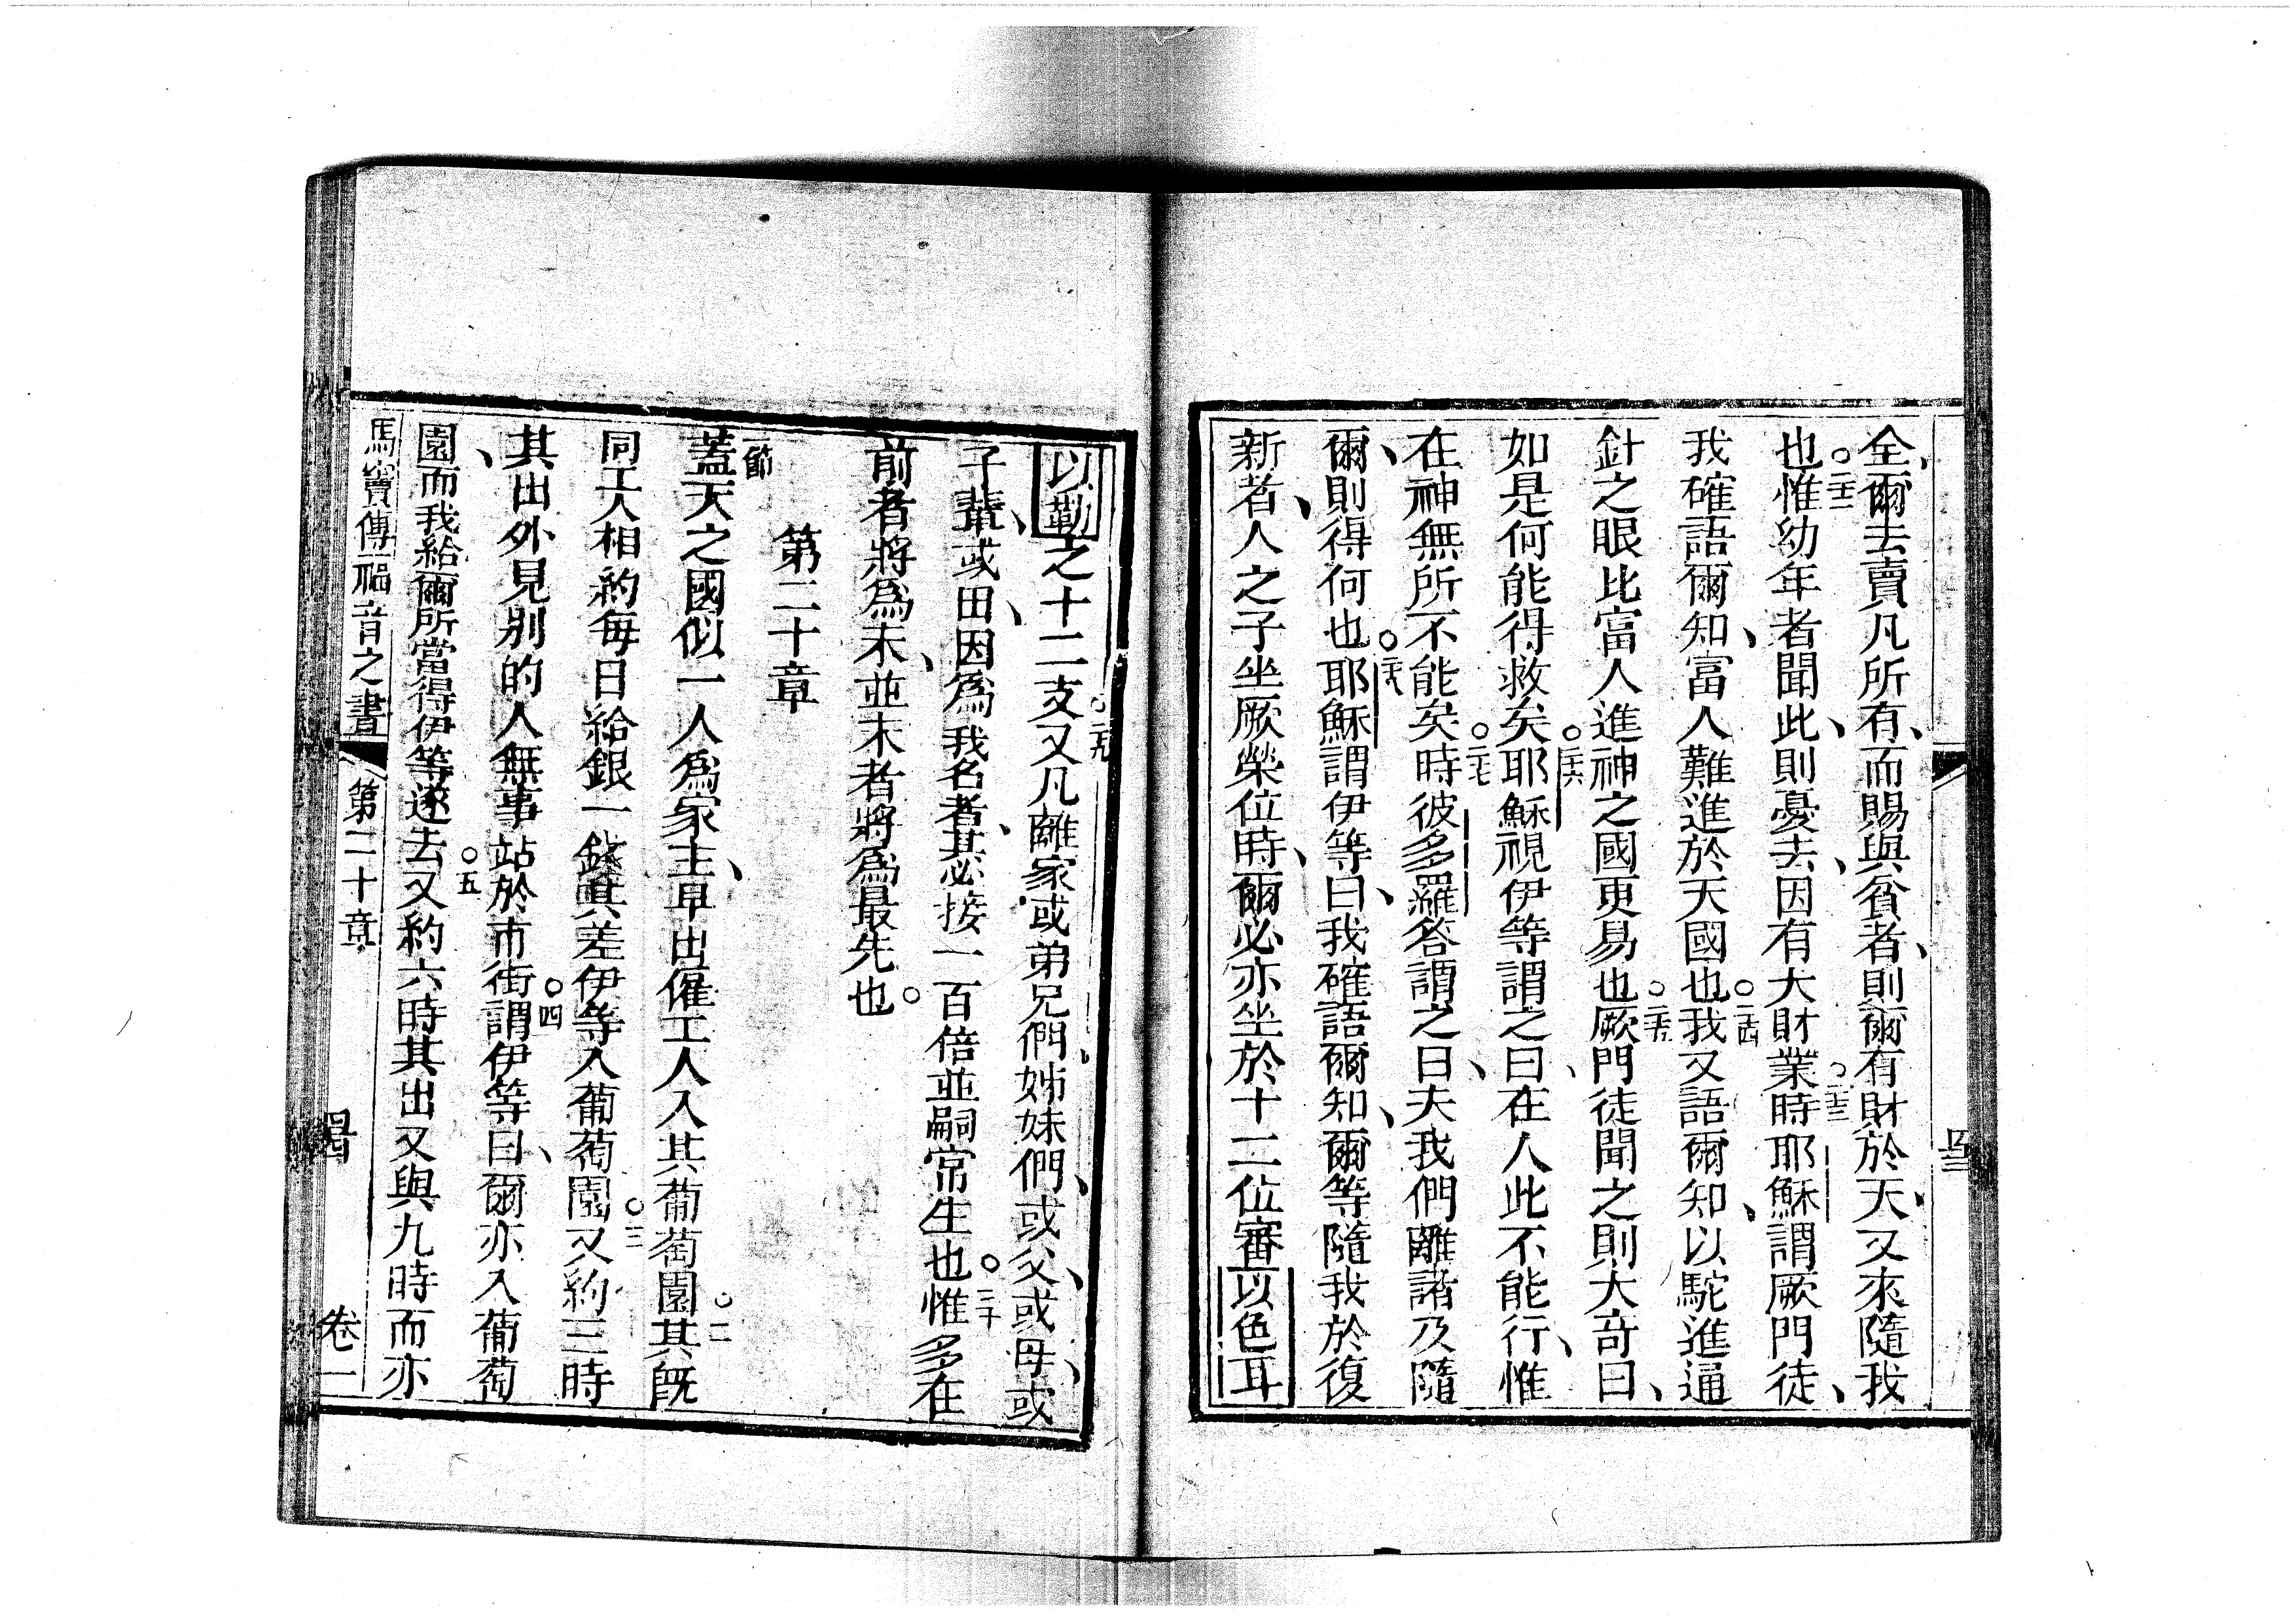 全爾去賣凡所有、而賜與貧者、則爾有財於天、又來隨我
也○二十二惟幼年者聞此、則憂去、因有大財業○二十三時耶穌謂厥門徒、
我確語爾知、富人難進於天國也○二十四我又語爾知、以駝進通
針之眼比富人進神之國更易也○二十五厥門徒聞之則大奇曰、
如是何能得救矣○二十六耶穌視伊等謂之曰、在人此不能行、惟
在神無所不能矣○二十七時彼多羅答謂之曰、夫我們離諸及隨
爾、則得何也○二十八耶穌謂伊等曰、我確語爾知、爾等隨我於復
新者、人之子坐厥榮位時、爾必亦坐於十二位審以色耳
以勒之十二支○二十九又凡離家或弟兄們、姊妹們、或父、或母、或
子輩、或田、因為我名者、其必接一百倍並嗣常生也○三十惟多在
前者將為末、並末者將為最先也。
第二十章
一節蓋天之國似一人為家主、早出催工人入其葡萄園○二其既
同工人相約每日給銀一錢其差伊等入葡萄園○三又約三時
其出外見別的人無事站於市街○四謂伊等曰、爾亦入葡萄
園、而我給爾所當得伊等遂去○五又約六時其出又與九時而亦
馬竇傳福音之書 第二十章 卷一